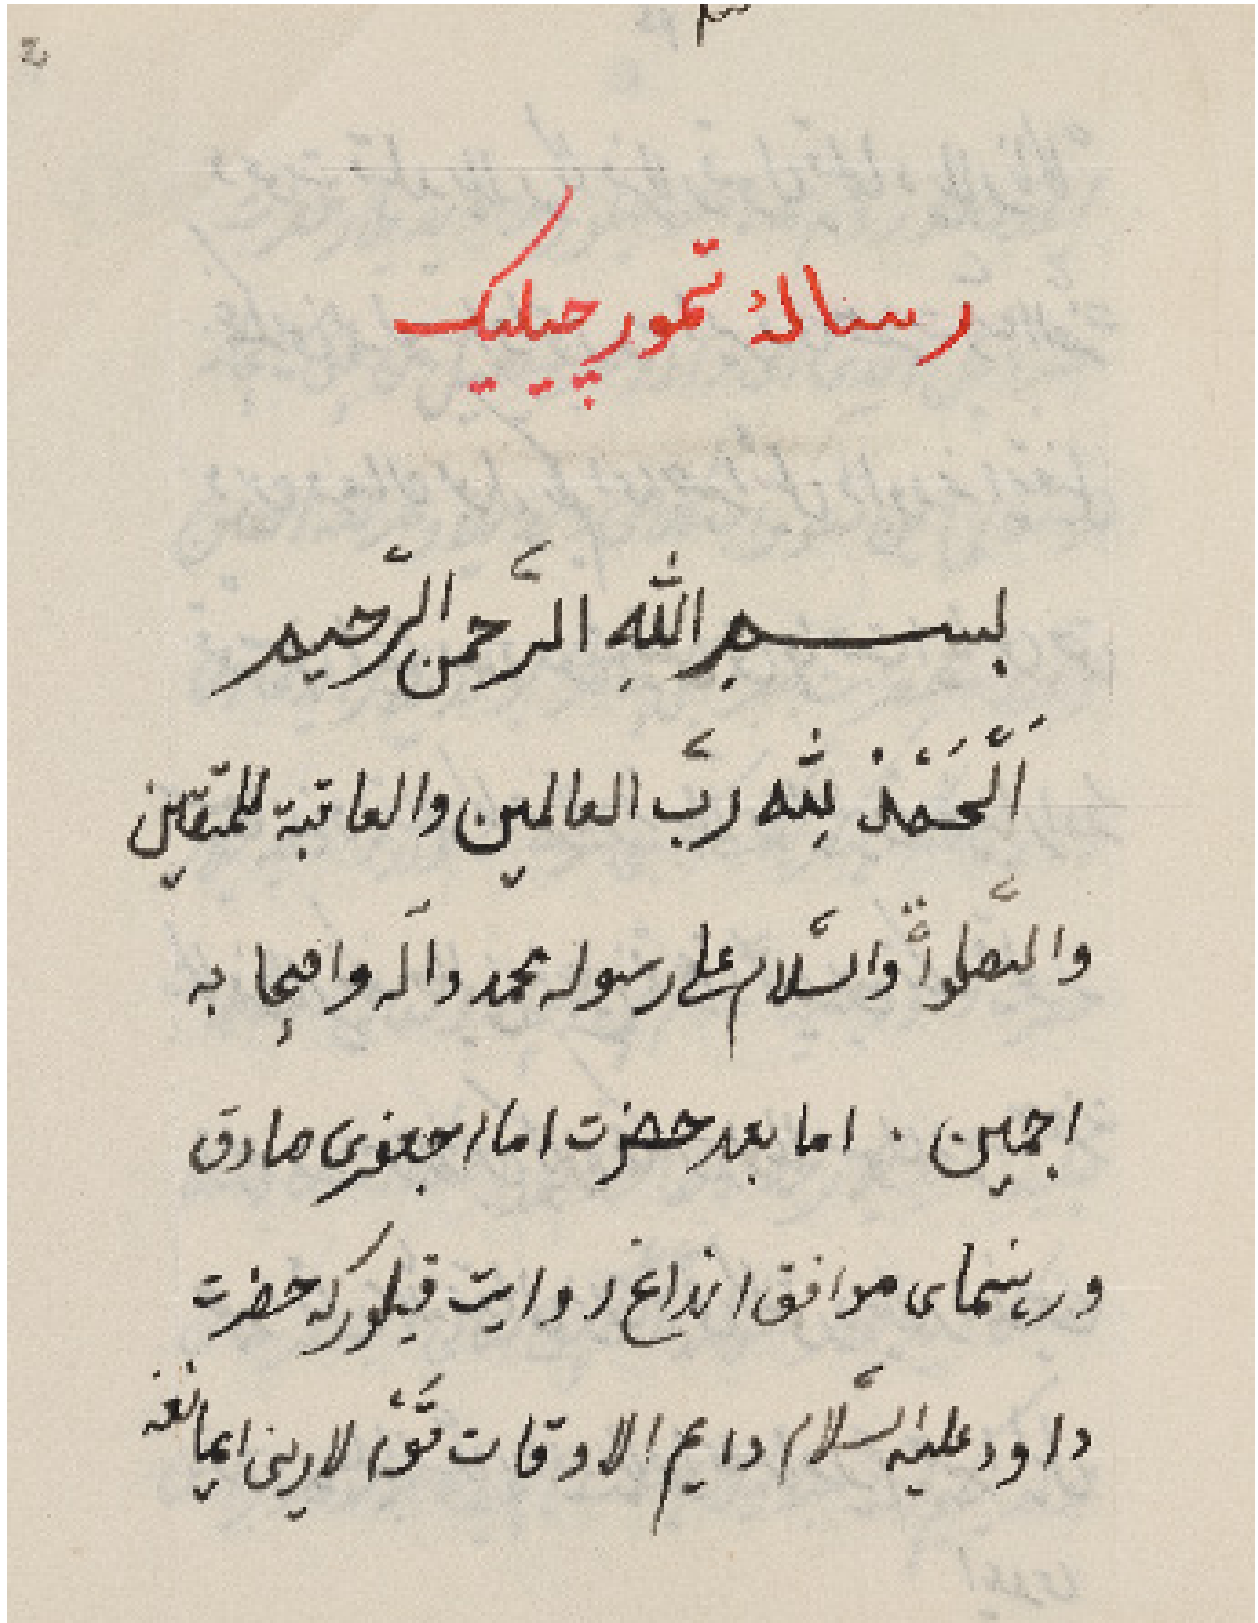 رسالهٔ تمورچیلیک
بسم الله الرّحمن الرّحیم
اَلْحَمْدُ لِلّٰه ربّ العالمین والعاقبة للمتقین
والصلواة والسّلام علی رسوله محمد واله واصحابه
اجمعین . اما بعد حضرت امام جعفری صادق
و رهنمای موافق انداغ روایت قیلورکه حضرت
داود علیه السّلام دایم الاوقات قَوْم لارینی ایمانغه